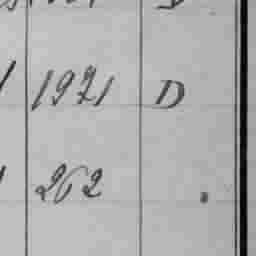 1921 D
262 .